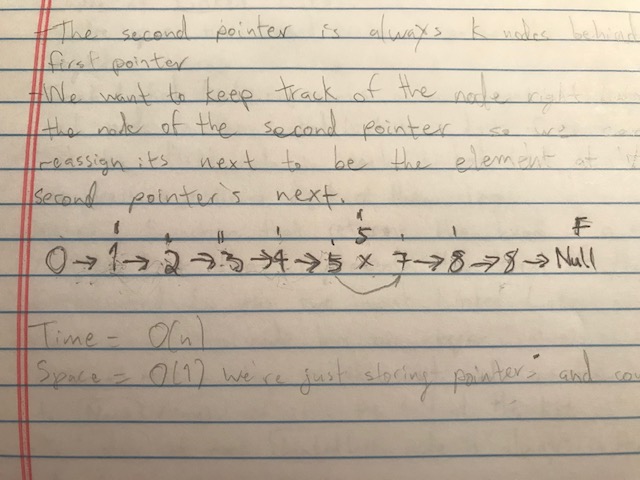 - The second pointer is always k nodes behind
first pointer
- We want to keep track of the node right
the node of the second pointer so we
reassign its next to be the element at
second pointer's next.
S F
0 → 1 → 2 → 3 → 4 → 5 x 7 → 8 → 8 → Null
Time = O(n)
Space = O(1) we're just storing pointers and